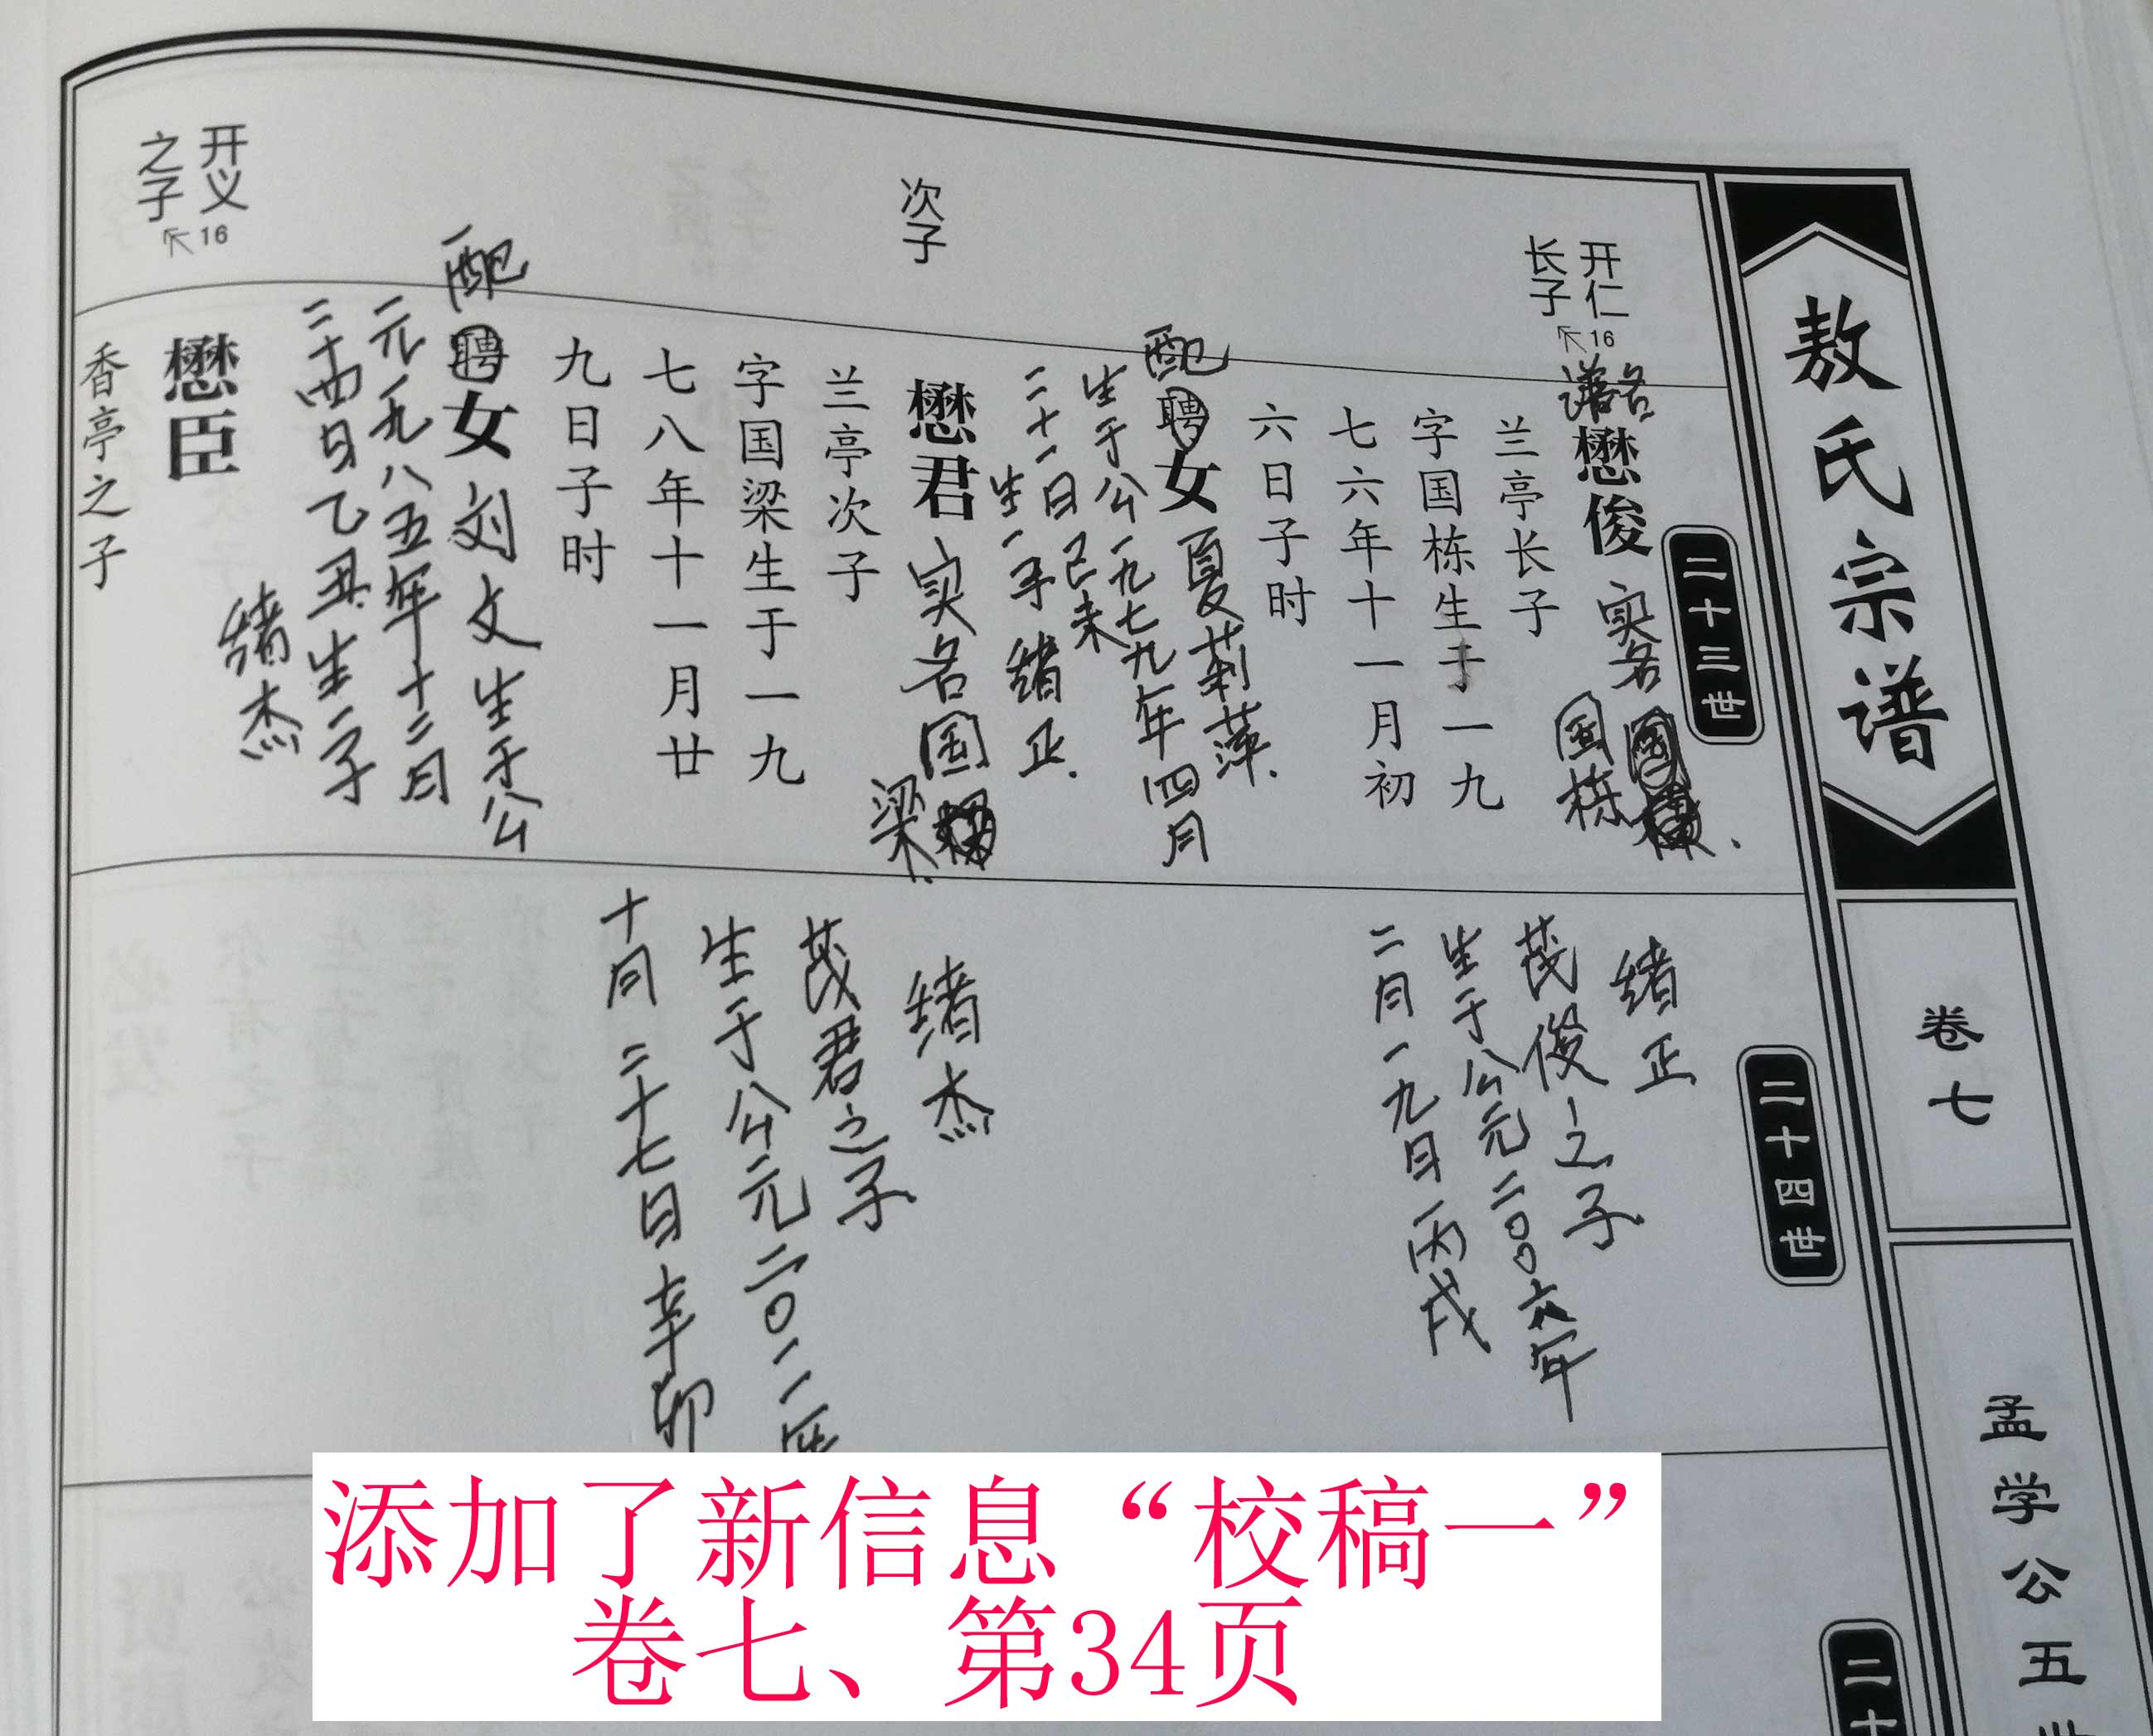 敖氏宗谱
卷七
孟学公五世
二十三世
开仁
长子
16
谱名
懋俊 实名
国栋
兰亭长子
字国栋生于一九
七六年十一月初
六日子时
配聘女 夏莉萍
生于公一九七九年四月
二十一日己未
生一子 绪正
次子
懋君 实名国
梁
兰亭次子
字国梁生于一九
七八年十一月廿
九日子时
配聘女 刘文生于公
元一九八五年十二月
二十四日乙丑生一子
绪杰
开义
之子
16
懋臣
香亭之子
二十四世
绪正
茂俊之子
生于公元二〇〇六年
二月一九日丙戌
绪杰
茂君之子
生于公元二〇一一年
十月二十七日辛卯
二十
添加了新信息“校稿一”
卷七、第34页